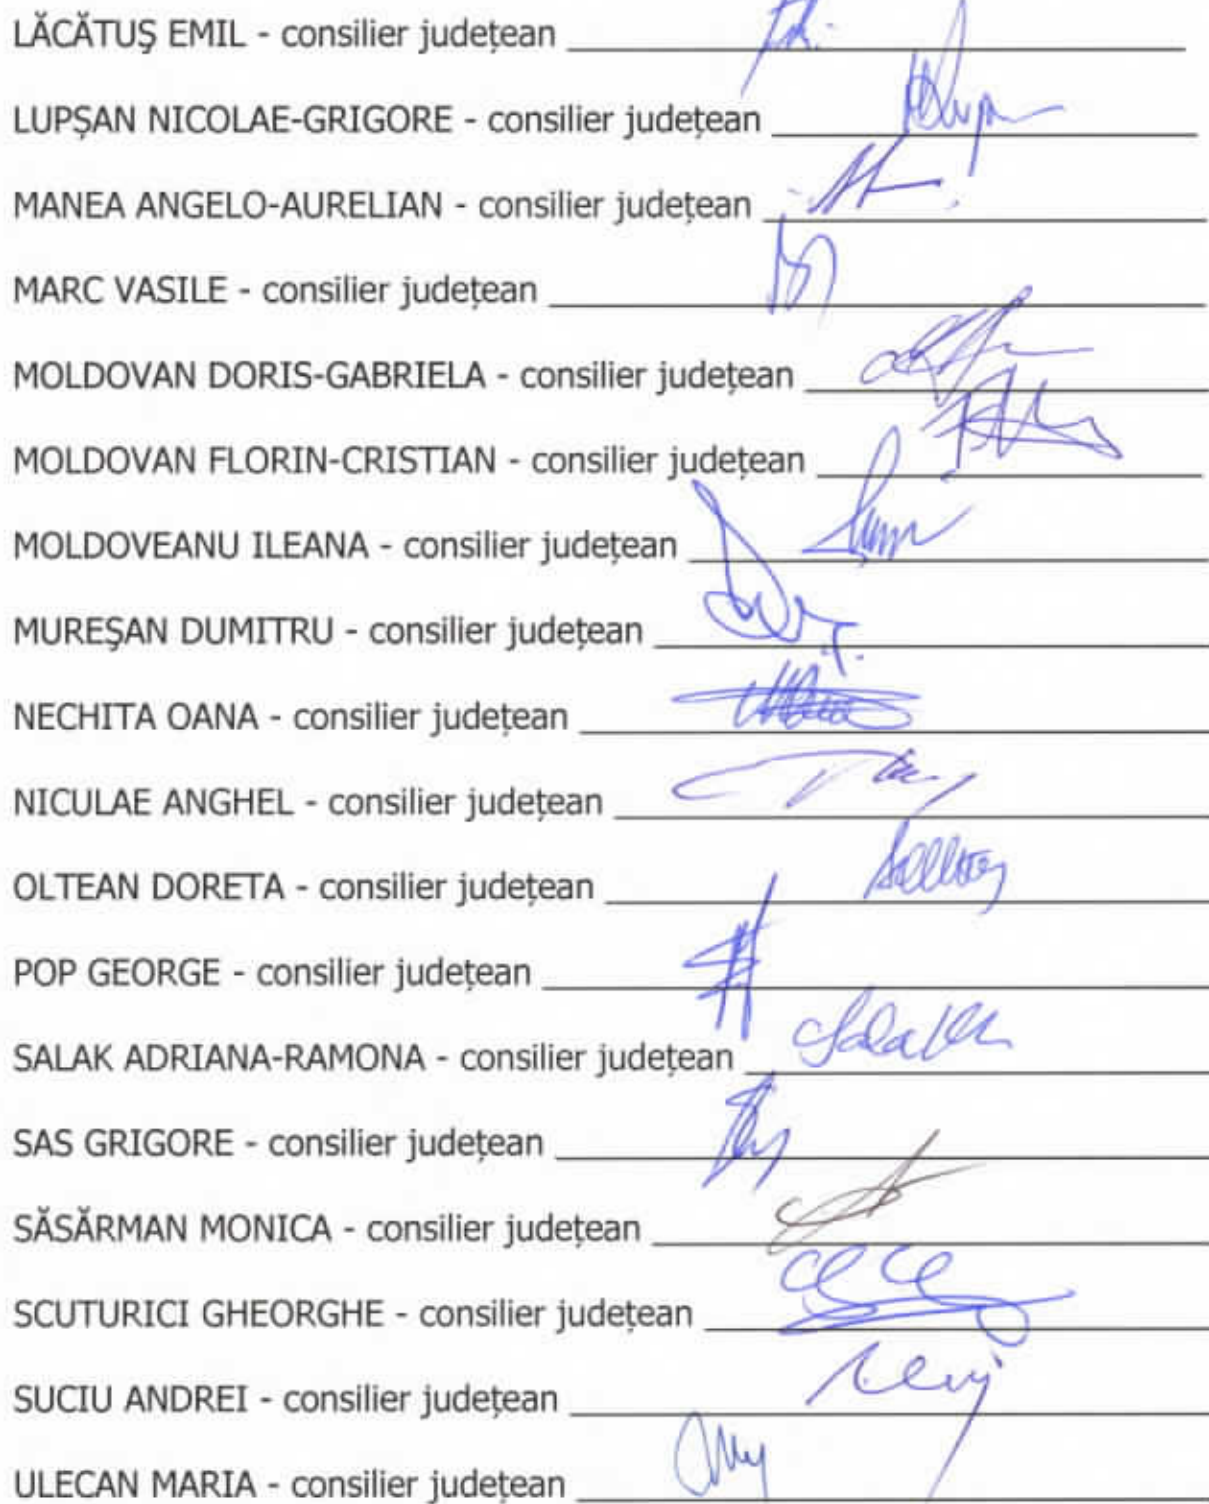 LĂCĂTUŞ EMIL - consilier județean
LUPȘAN NICOLAE-GRIGORE - consilier județean
MANEA ANGELO-AURELIAN - consilier județean
MARC VASILE - consilier județean
MOLDOVAN DORIS-GABRIELA - consilier județean
MOLDOVAN FLORIN-CRISTIAN - consilier județean
MOLDOVEANU ILEANA - consilier județean
MUREŞAN DUMITRU - consilier județean
NECHITA OANA - consilier județean
NICULAE ANGHEL - consilier județean
OLTEAN DORETA - consilier județean
POP GEORGE - consilier județean
SALAK ADRIANA-RAMONA - consilier județean
SAS GRIGORE - consilier județean
SĂSĂRMAN MONICA - consilier județean
SCUTURICI GHEORGHE - consilier județean
SUCIU ANDREI - consilier județean
ULECAN MARIA - consilier județean